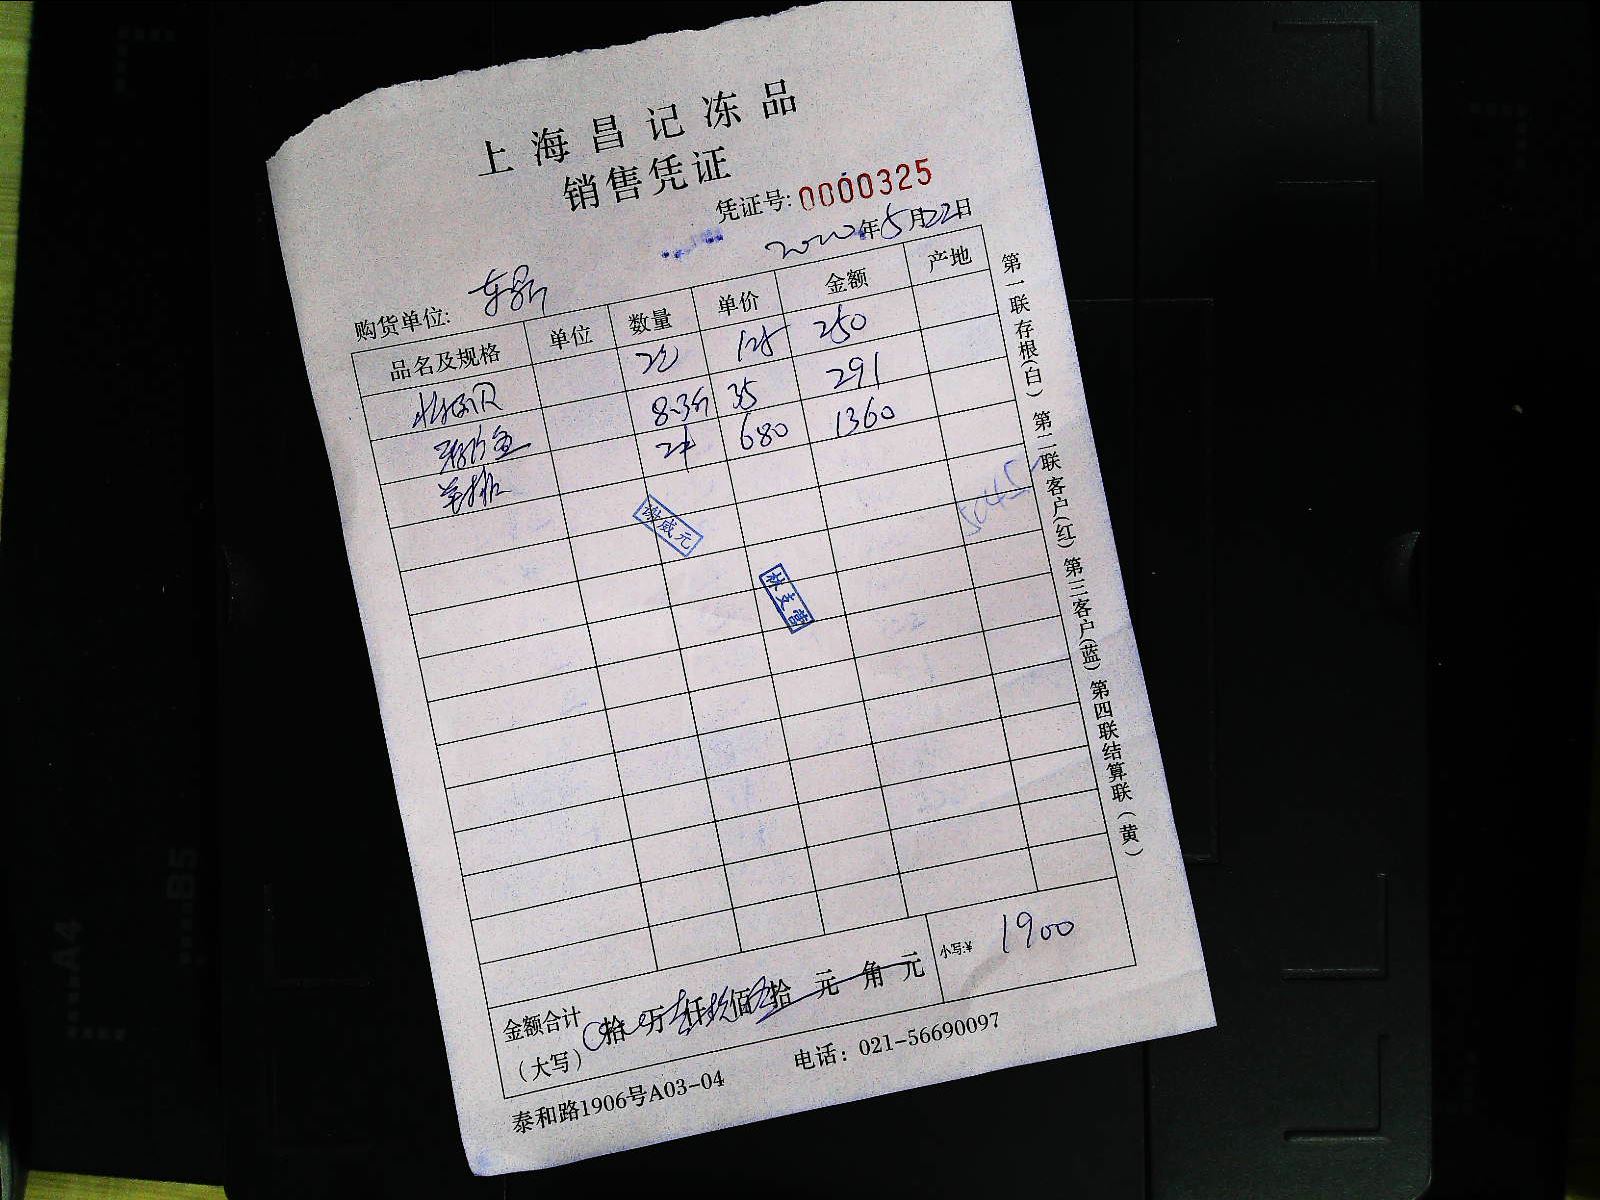 上海昌记冻品
销售凭证
凭证号: 0000325
2020年5月22日
购货单位: 东部
品名及规格 单位 数量 单价 金额 产地
2包 125 250
8.3斤 35 291
羊排 2件 680 1360
5045
林支营
金额合计（大写） 拾 万 仟 佰 拾 元 角 元 小写:¥ 1900
泰和路1906号A03-04 电话：021-56690097
第一联存根(白) 第二联客户(红) 第三客户(蓝) 第四联结算联（黄）
A4
B5